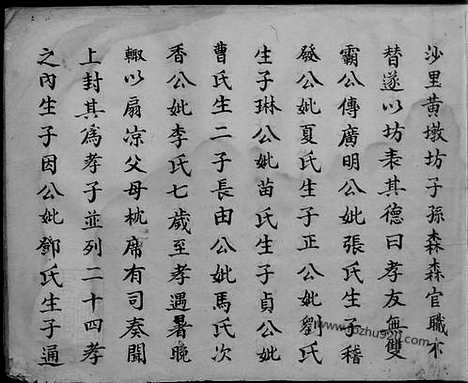 沙里黃墩坊子孫森森官職不
替遂以坊表其德曰孝友無雙
霸公傳廣明公妣張氏生子稽
發公妣夏氏生子正公妣劉氏
生子琳公妣苗氏生子貞公妣
曹氏生二子長由公妣馬氏次
香公妣李氏七歲至孝遇暑晚
輙以扇凉父母枕席有司奏聞
上封其為孝子並列二十四孝
之內生子因公妣鄧氏生子通